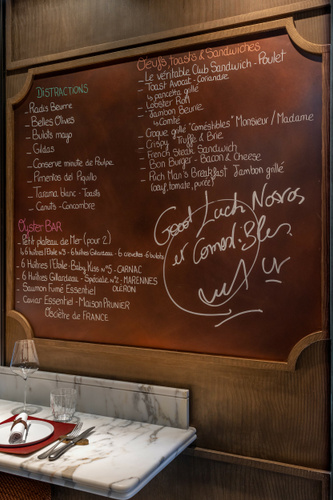 DISTRACTIONS
_ Radis Beurre
_ Belles Olives
_ Bulots mayo
_ Gildas
_ Conserve minute de Poulpe
_ Pimentos del Piquillo
_ Tarama blanc - Toasts
_ Canuts - Concombre
Oyster BAR
_ Petit plateau de Mer (pour 2)
_ 6 Huîtres l'Etoile Baby Kiss n°5 - CARNAC
_ 6 Huîtres Gillardeau - Spéciale n°2 - MARENNES
OLÉRON
_ Saumon Fumé Essentiel
_ Caviar Essentiel - Maison PRUNIER
Osciètre de FRANCE
Oeufs, toasts & Sandwiches
_ Le véritable Club Sandwich - Poulet
_ Toast Avocat - Coriandre
& pancetta grillé
_ Lobster Roll
_ Jambon Beurre
& Comté
_ Croque grillé "Comestibles" Monsieur / Madame
_ Crispy Truffe & Brie
_ French Steak Sandwich
_ Bon Burger - Bacon & Cheese
_ Rich Man's Breakfast Jambon grillé
(oeuf, tomate, purée)
Good Luck